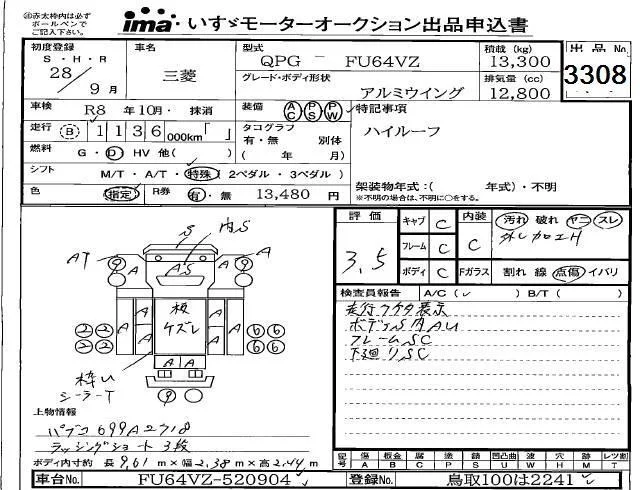 ㊟赤太枠内は必ず
ボールペンで
ご記入下さい。
ima いすゞモーターオークション出品申込書
初度登録
S・H・R
28/9月
車名
三菱
型式
QPG － FU64VZ
グレード・ボディ形状
アルミウイング
積載(kg)
13,300
排気量(cc)
12,800
出品No
3308
車検
R8年10月・抹消
装備
AC PS PW
特記事項
ハイルーフ
走行
B 1136 000km「 」
タコグラフ 別体
有・無
( 年 月)
燃料
G・D HV 他( )
シフト
M/T・A/T・特殊(2ペダル・3ペダル)
架装物年式:( 年式)・不明
※不明の場合は、不明に○をする。
色
指定
R券
有・無 13,480 円
評価
3.5
キャブ C
フレーム C
ボディ C
内装
C
Fガラス
汚れ 破れ ヤニ スレ
外し加工H
割れ 線 点傷 イバリ
検査員報告 A/C( ) B/T( )
走行フケタ表示
ボデーS凹AU
フレームSC
下廻りSC
S
凹S
AT
9
A
AS
A
9
A
A
板
ケズレ
A
A
A
A
A A
2 2
2 2
6 6
6 6
枠い
シーラーT
9
上物情報
パブコ 699A2718
ラッシングショート3段
ボディ内寸約 長 9.61 m×幅 2.38 m×高 2.44 m
記号
傷 板金 腐 塗 錆 凹凸曲 波 穴 跡 レツ割
A B C P S U W H M T
車台No. FU64VZ-520904
登録No. 鳥取100は2241